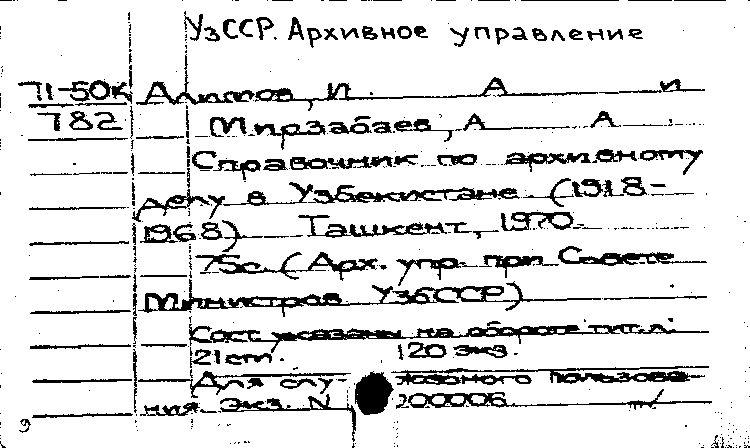 УзССР. Архивное управление
71-50к Алимов, И. А. и
782 Мирзабаев, А. А.
Справочник по архивному
делу в Узбекистане (1918-
1968). Ташкент, 1970.
75с. (Арх. упр. при Совете
Министров УзбССР)
Сост. указаны на обороте тит.л.
21см. 120 экз.
Для слу- жебного пользова-
ния. Экз. N 000006.
9